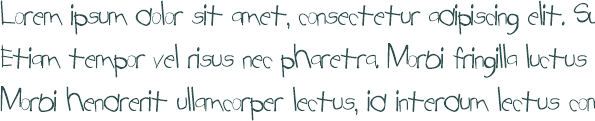 Lorem ipsum dolor sit amet, consectetur adipiscing elit. Su
Etiam tempor vel risus nec pharetra. Morbi fringilla luctus
Morbi hendrerit ullamcorper lectus, id interdum lectus con